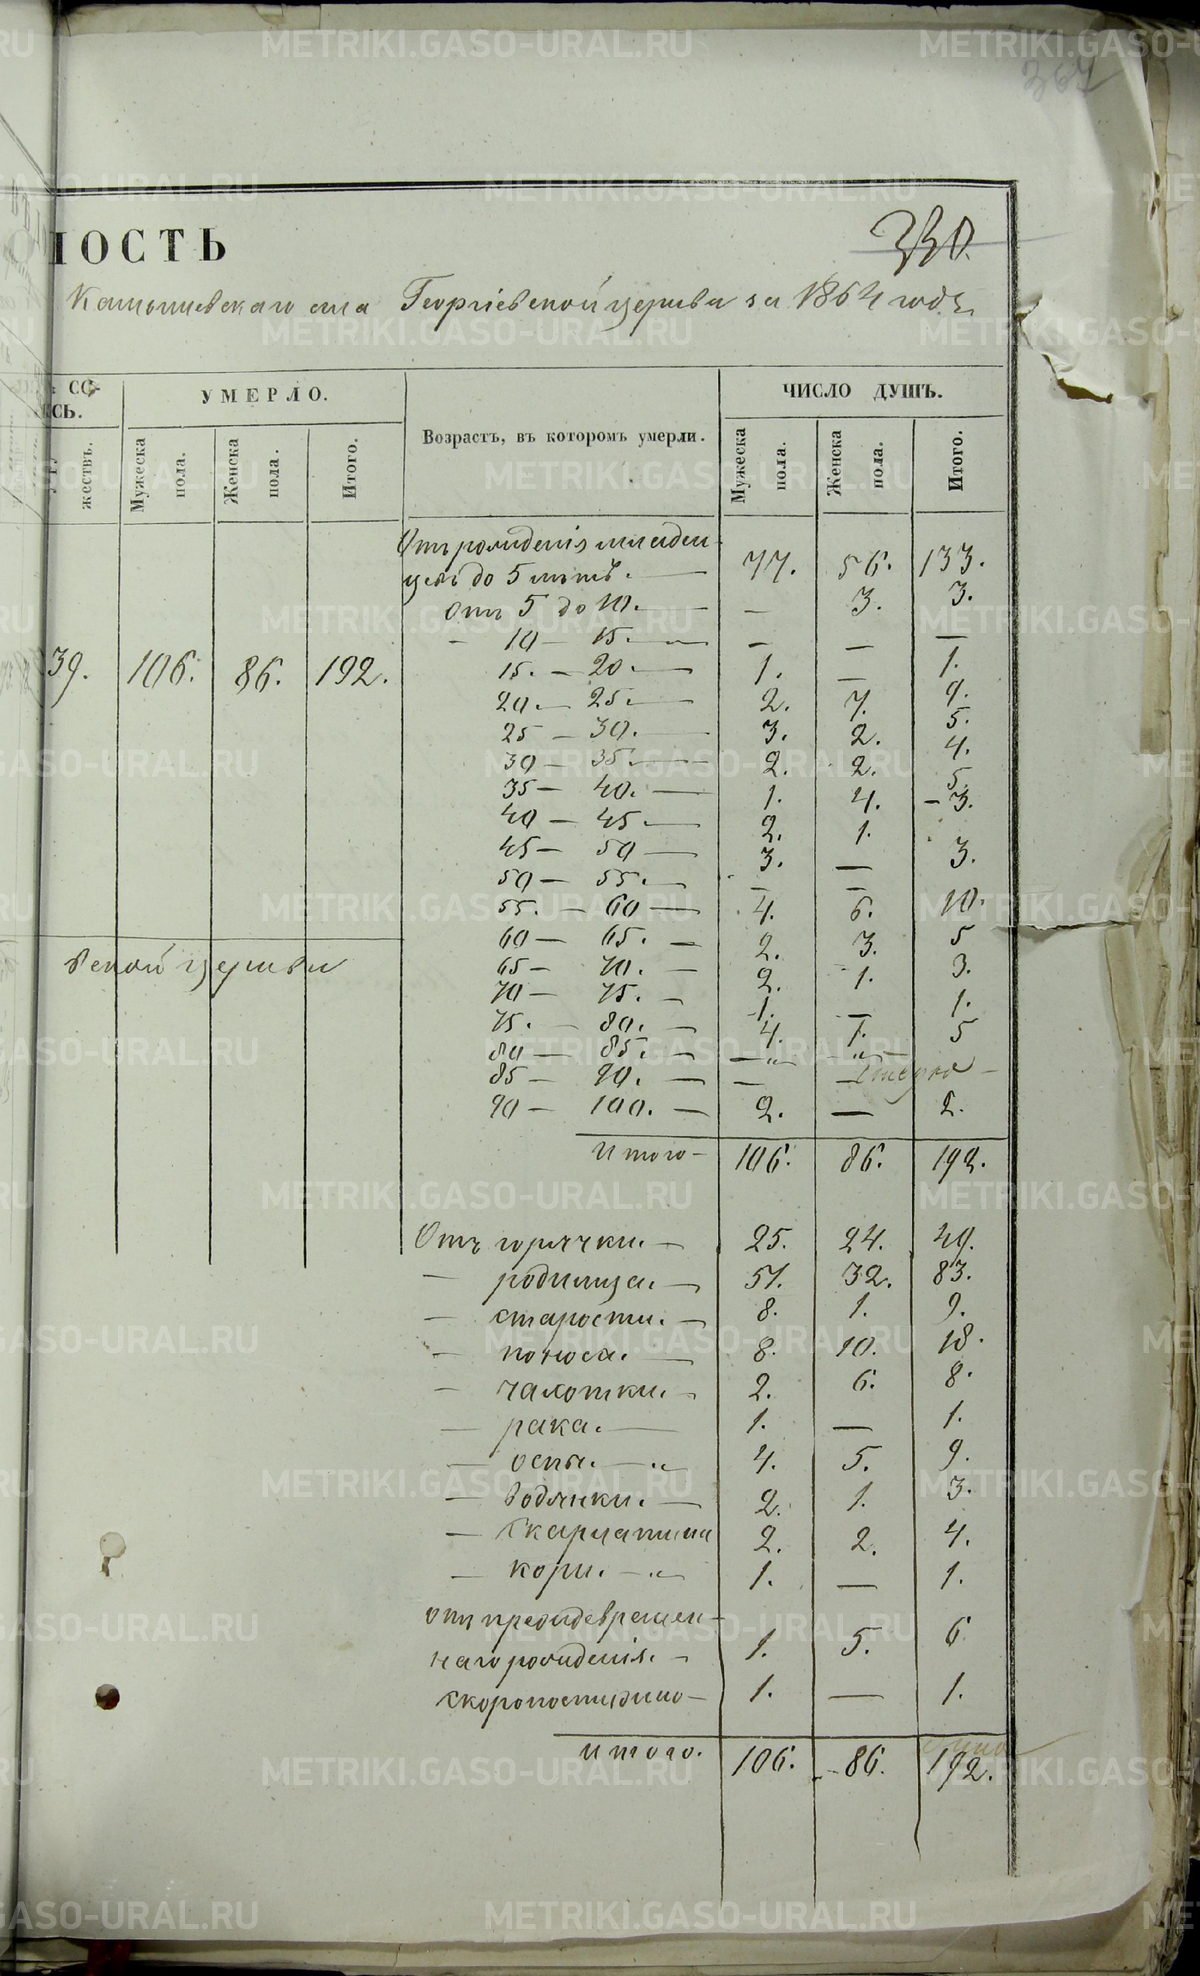 METRIKI.GASO-URAL.RU
367
330.
ОСТЬ
Камышевскаго села Георгіевской церкви за 1864 годъ
СО-
СЬ.
УМЕРЛО.
Возрастъ, въ которомъ умерли.
ЧИСЛО ДУШЪ.
жествъ.
Мужеска пола.
Женска пола.
Итого.
Мужеска пола.
Женска пола.
Итого.
Отъ рожденія младен-
цевъ до 5 лѣтъ. — 77. 56. 133.
Отъ 5 до 10. — — 3. 3.
— 10 — 15. — — — —
39. 106. 86. 192.
15. — 20. — 1. — 1.
20. — 25. — 2. 7. 9.
25 — 30. — 3. 2. 5.
30 — 35. — 2. 2. 4.
35 — 40. — 1. 4. 5.
40 — 45. — 2. 1. — 3.
45 — 50 — 3. — 3.
50 — 55. — — —
55. — 60 — 4. 6. 10.
60 — 65. — 2. 3. 5
ской церкви
65 — 70. — 2. 1. 3.
70 — 75. — 1. — 1.
75. — 80. — 4. 1. 5
80 — 85. — — „ — — „ —
85 — 90. — — —
90 — 100. — 2. — 2.
Итого — 106. 86. 192.
Отъ горячки. — 25. 24. 49.
— родимца. — 51. 32. 83.
— старости. — 8. 1. 9.
— поноса. — 8. 10. 18.
— чахотки. — 2. 6. 8.
— рака. — 1. — 1.
— оспы. — „ — 4. 5. 9.
— водянки. — 2. 1. 3.
— Скарлатины 2. 2. 4.
— кори. — „ — 1. — 1.
отъ преждевремен-
наго рожденія. — 1. 5. 6
скоропостижно — 1. — 1.
итого. 106. — 86. 192.